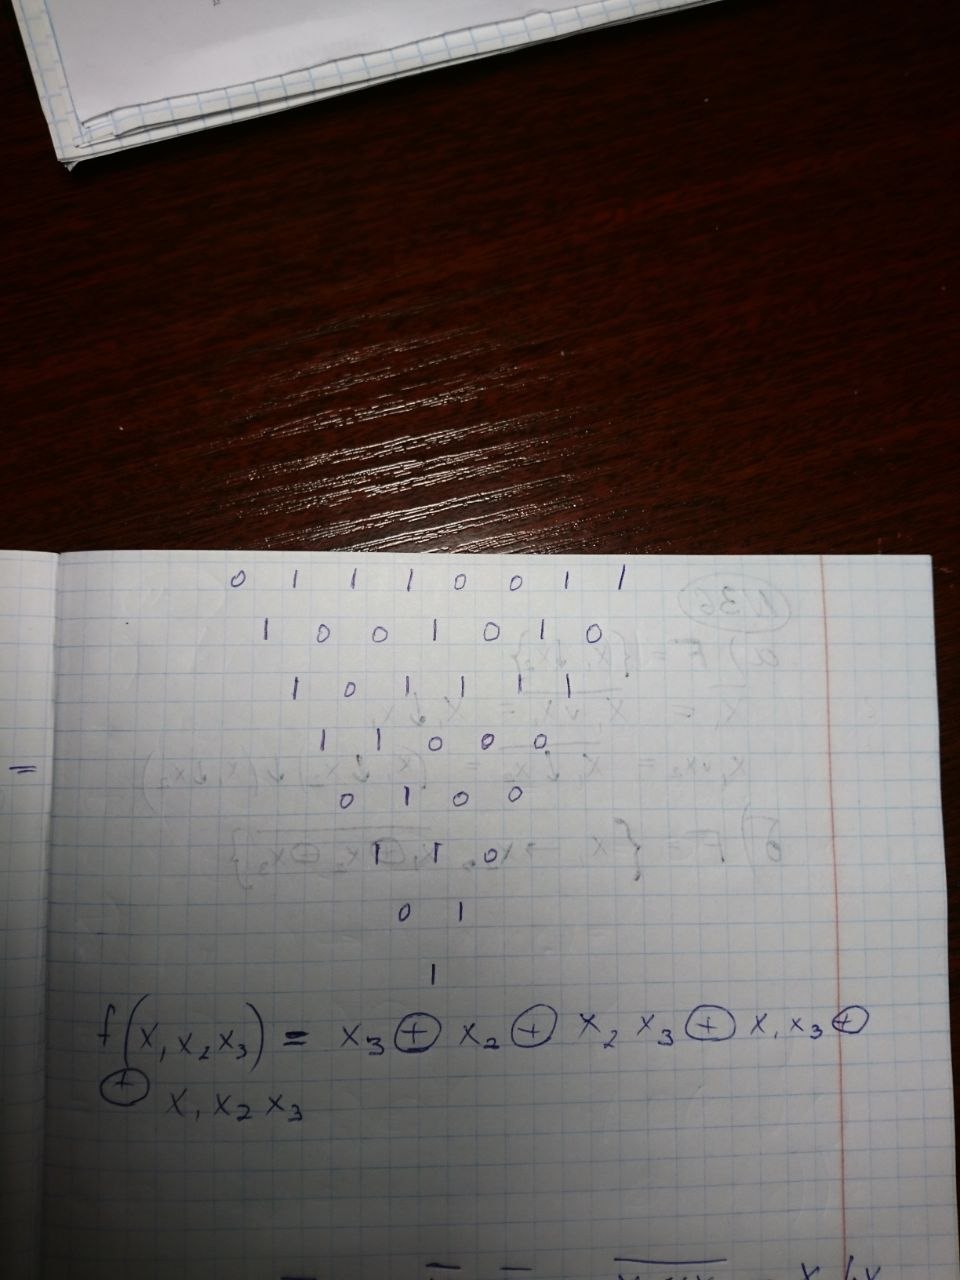 0 1 1 1 0 0 1 1
1 0 0 1 0 1 0
1 0 1 1 1 1
1 1 0 0 0
=
0 1 0 0
1 1 0
0 1
1
f(x₁ x₂ x₃) = x₃ ⊕ x₂ ⊕ x₂ x₃ ⊕ x₁ x₃ ⊕
⊕ x₁ x₂ x₃